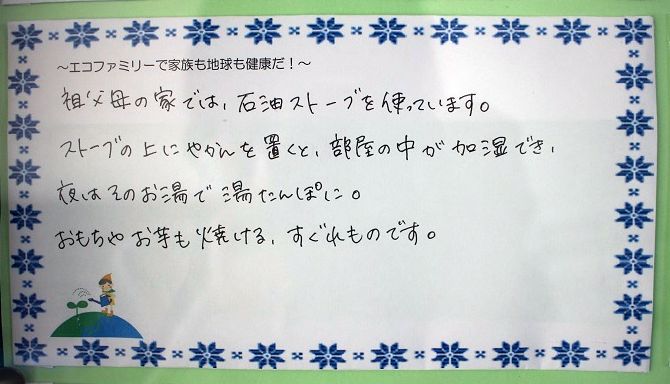 ～エコファミリーで家族も地球も健康だ！～
祖父母の家では、石油ストーブを使っています。
ストーブの上にやかんを置くと、部屋の中が加湿でき、
夜はそのお湯で湯たんぽに。
おもちやお芋も焼ける、すぐれものです。